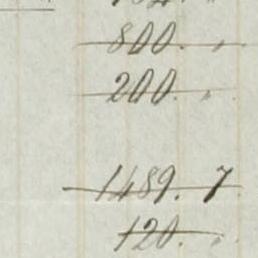 800. "
200. "
1489. 7
120. "